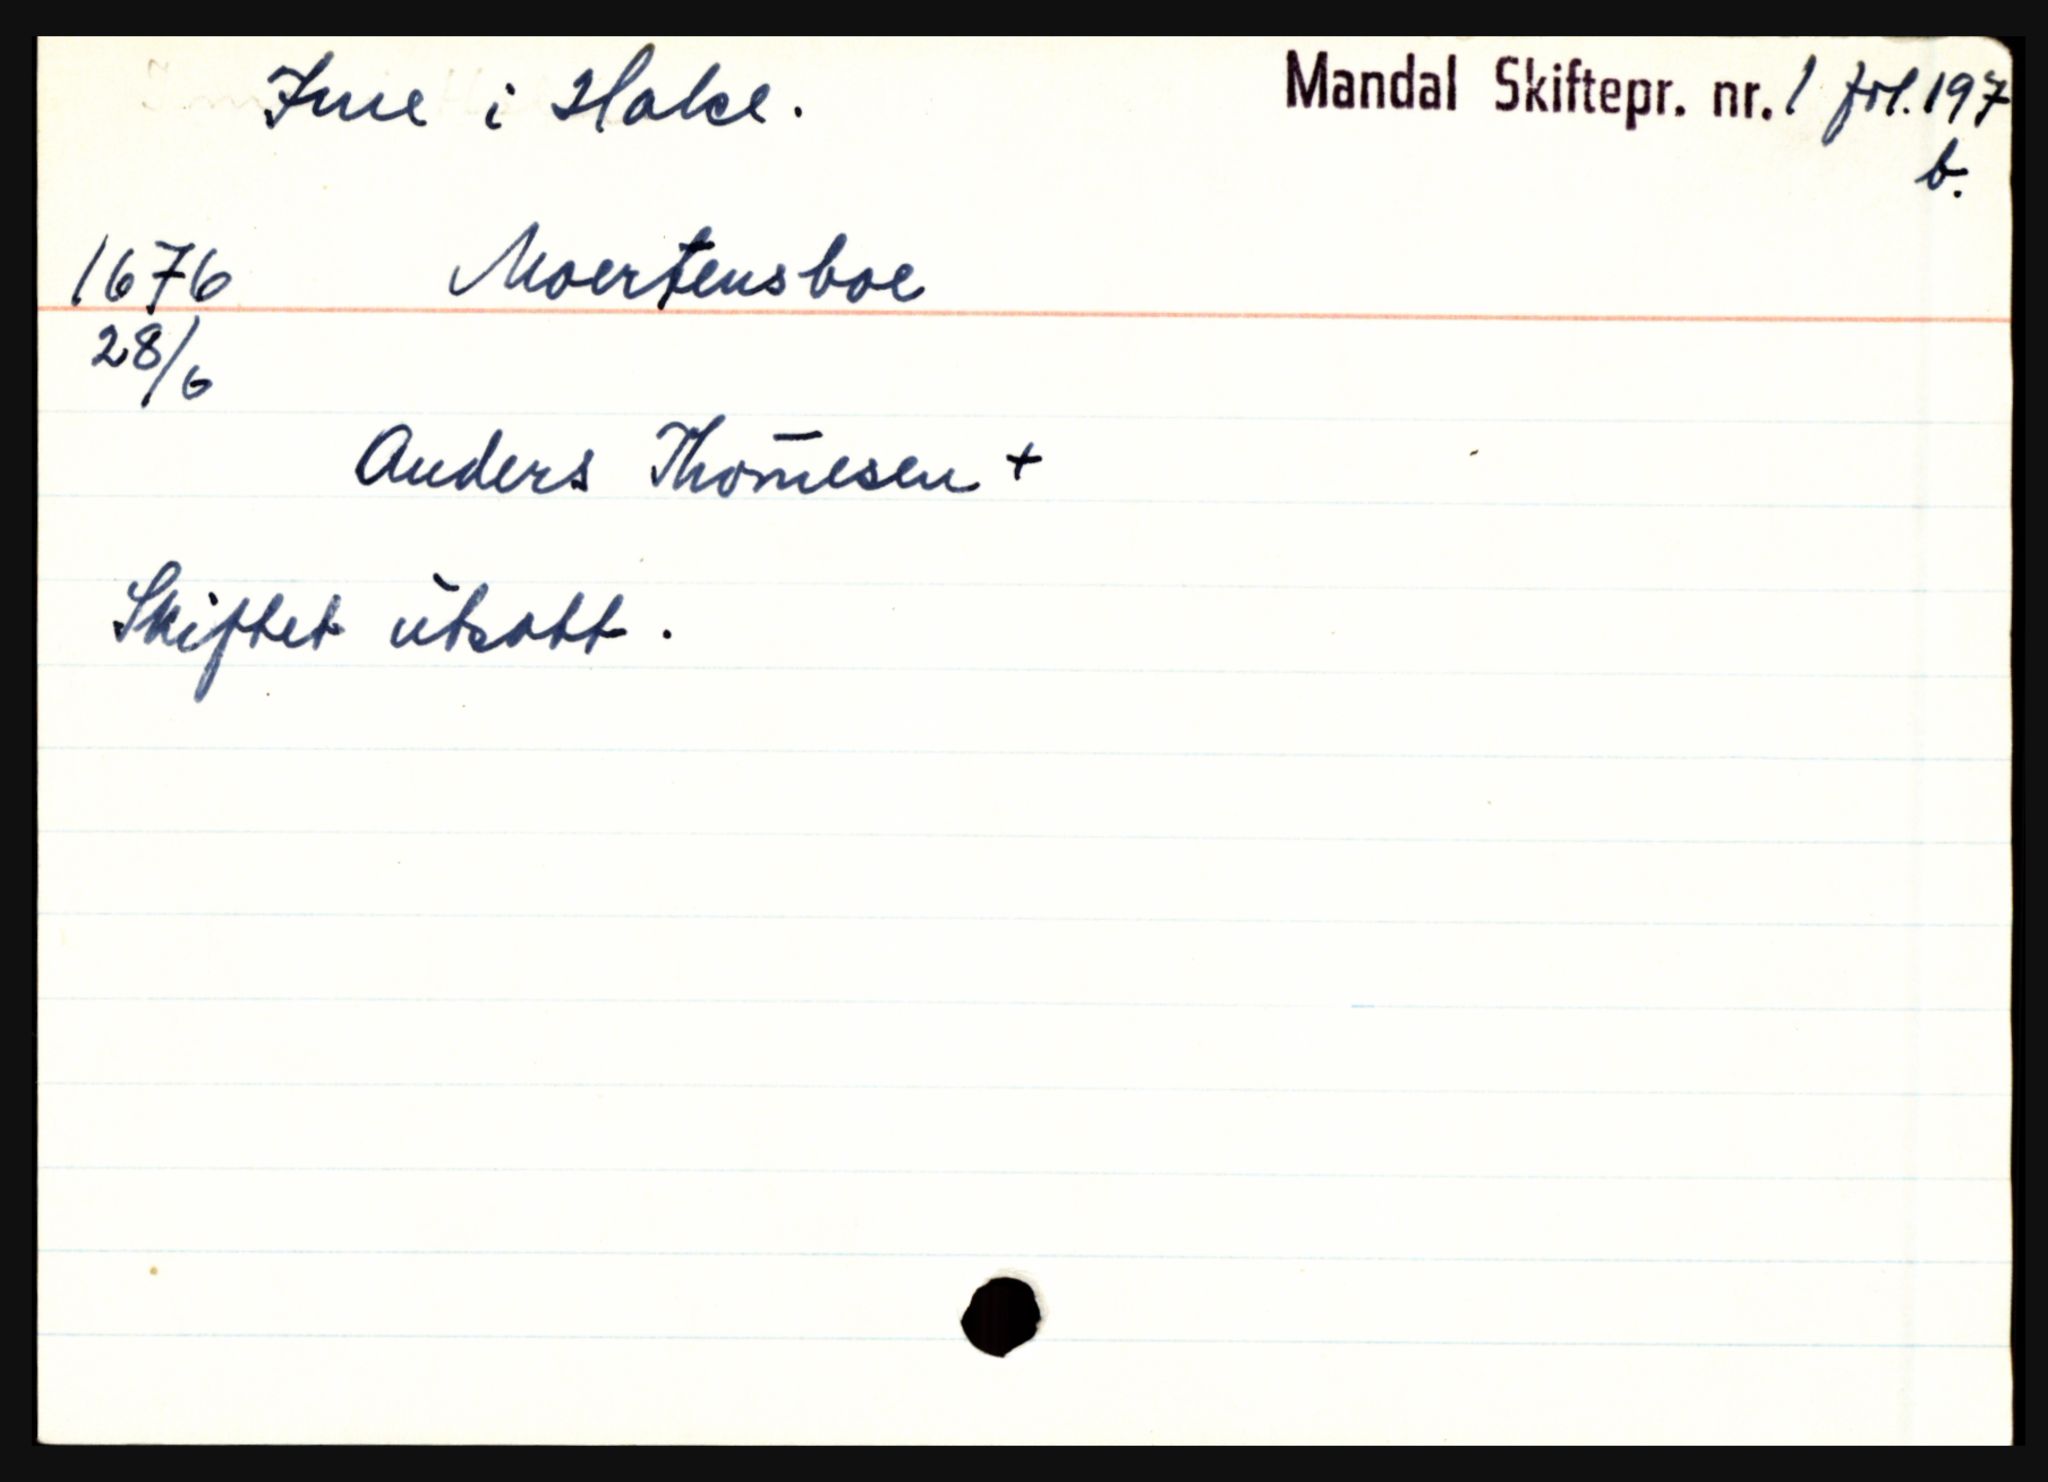 Ime i Halse.
Mandal Skiftepr. nr. 1 fol. 197
b.
1676 Moertensboe
28/6
Anders Thom̄esen +
Skiftet utsatt.